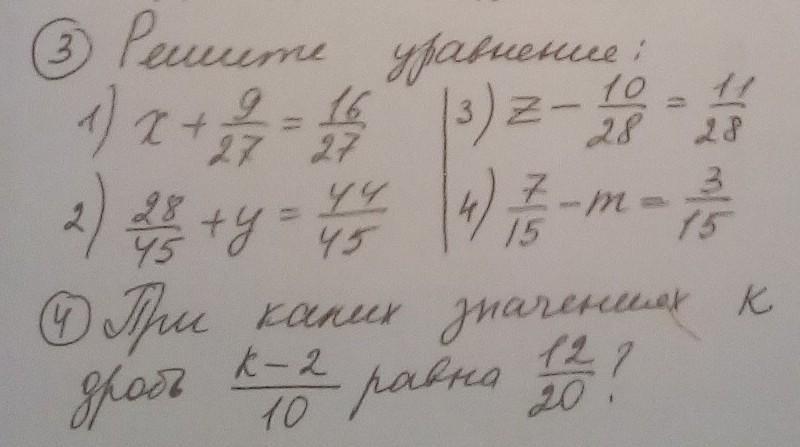 ③ Решите уравнение:
1) x + 9/27 = 16/27
2) 28/45 + y = 44/45
3) z − 10/28 = 11/28
4) 7/15 − m = 3/15
④ При каких значениях k
дробь (k−2)/10 равна 12/20?